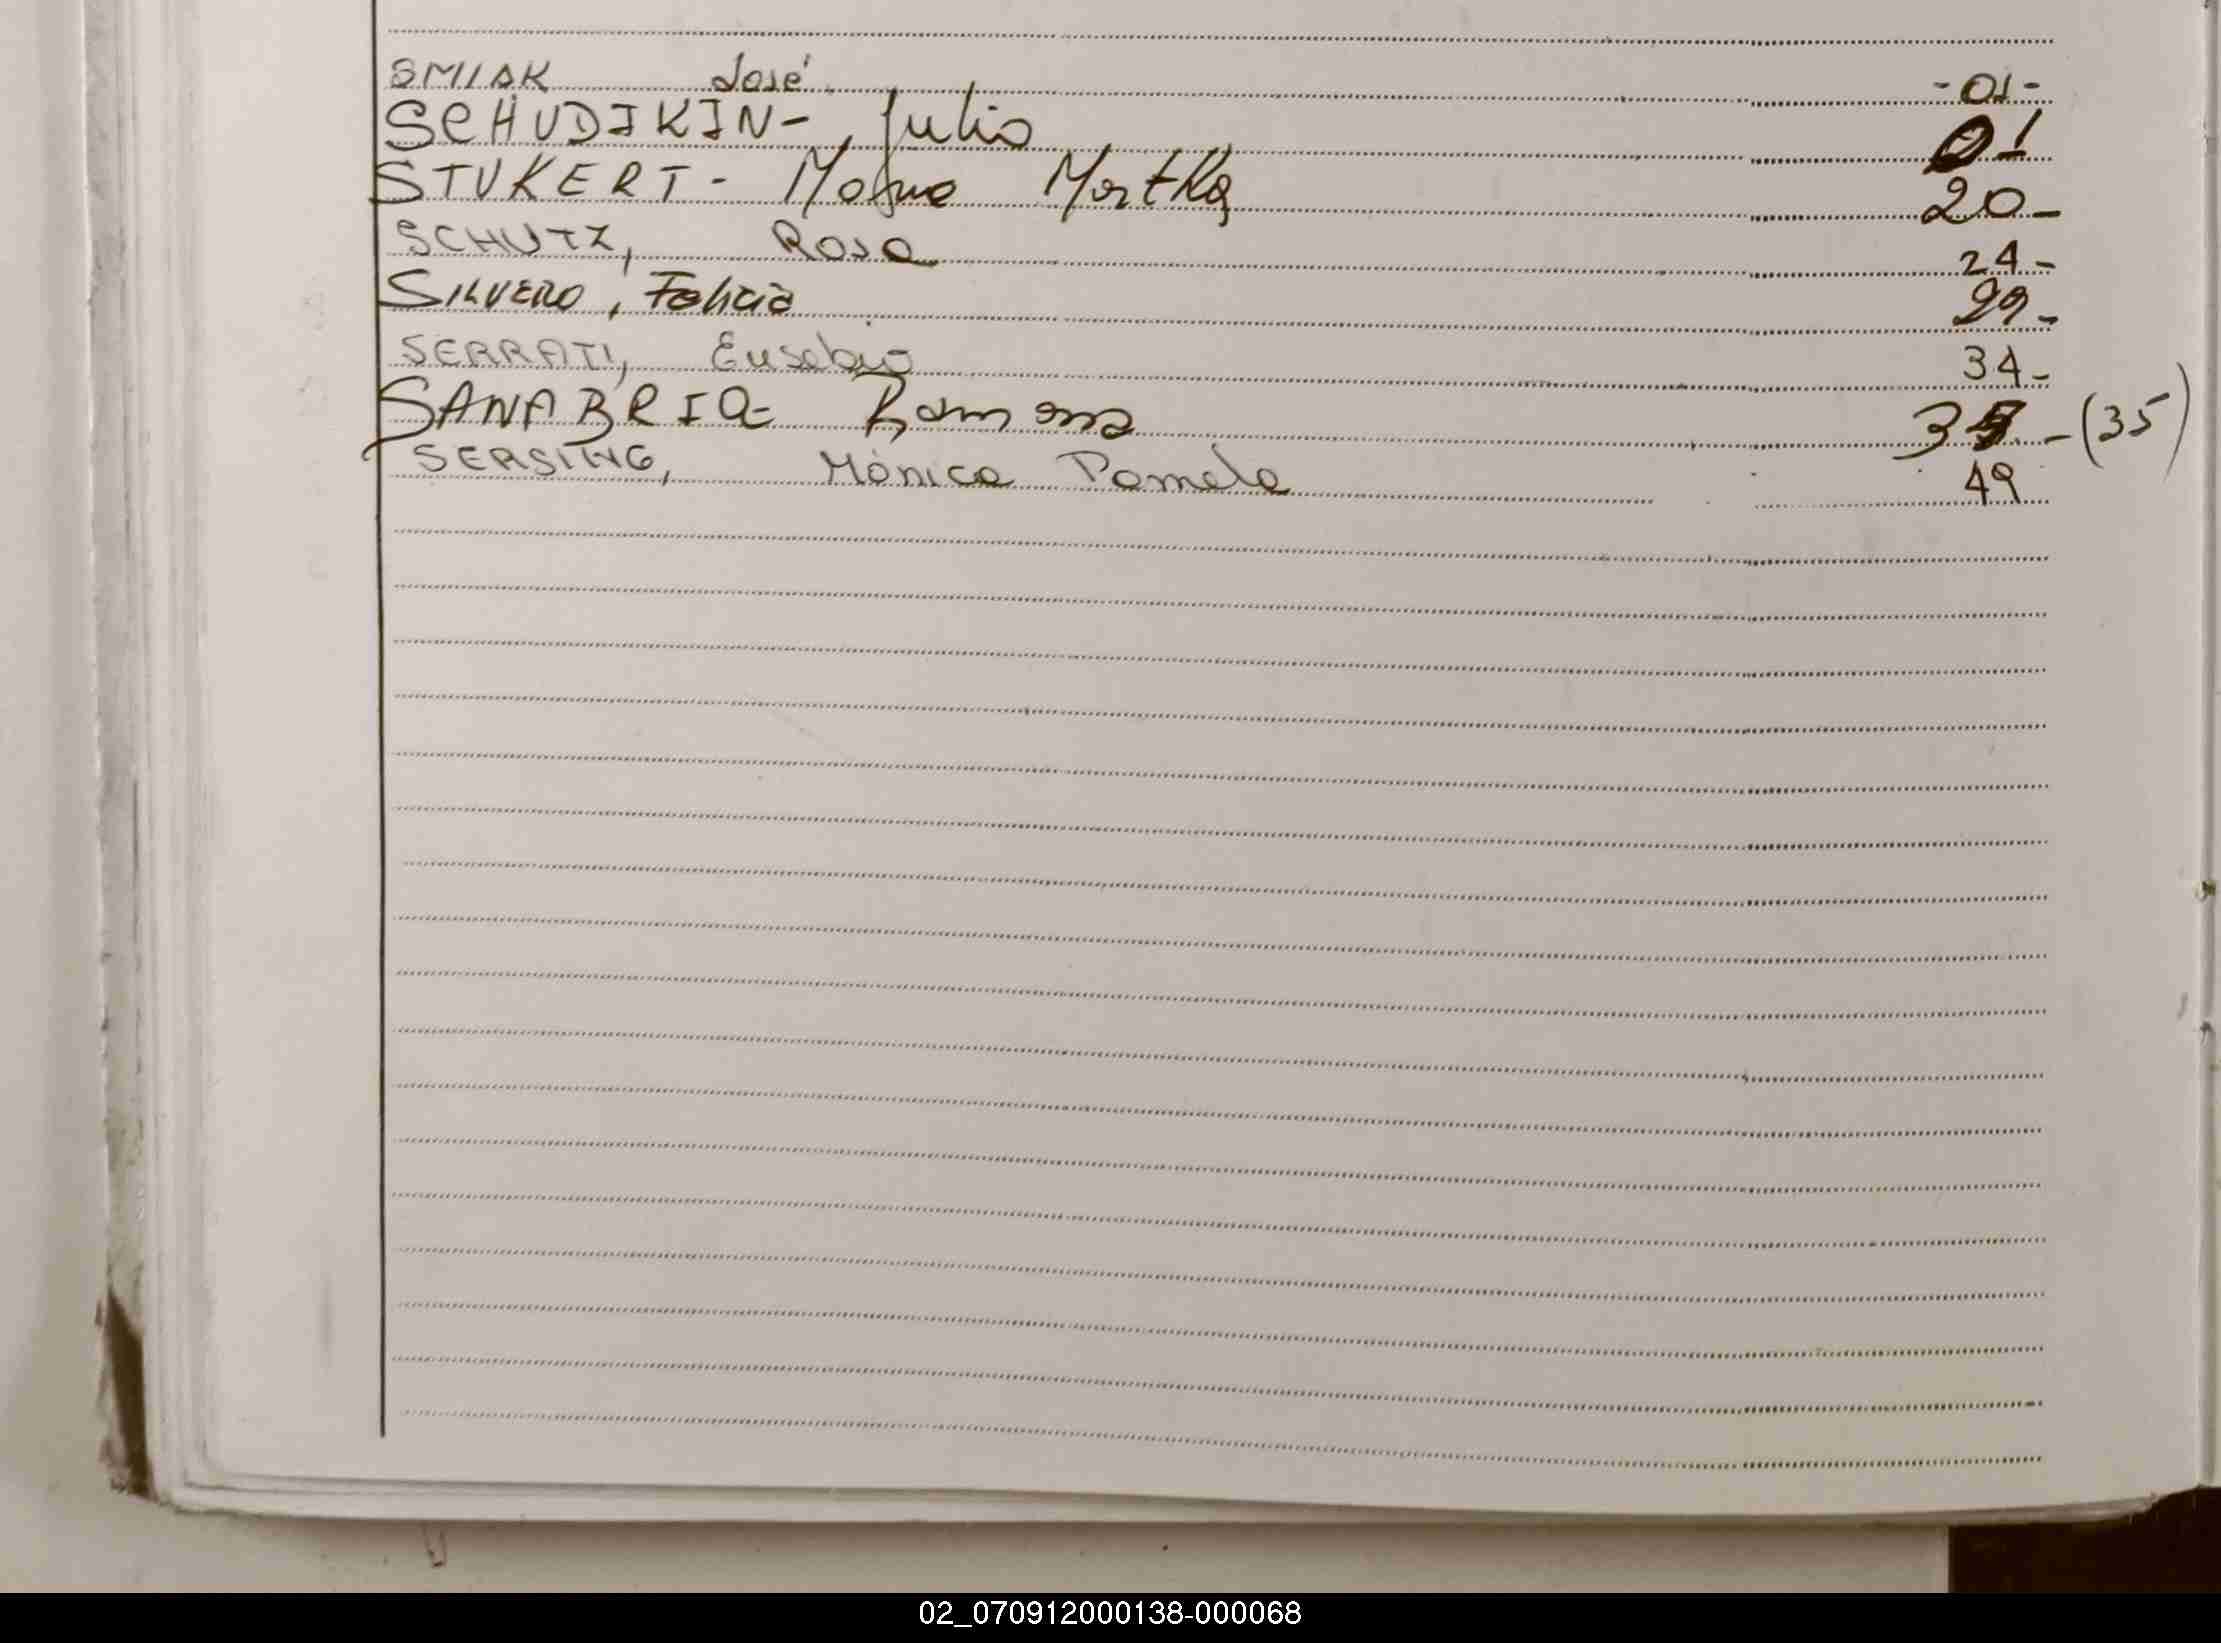 SMIAK José -01-
SCHUDIKIN- Julio 01
STUKERT- Martha 20-
SCHUTZ, Rosa 24-
SILVERO, Felicia 29-
SERRATI, Eusebio 34-
SANABRIA- Ramona 35-(35)
SERSING, Mónica Pamela 49
02_070912000138-000068